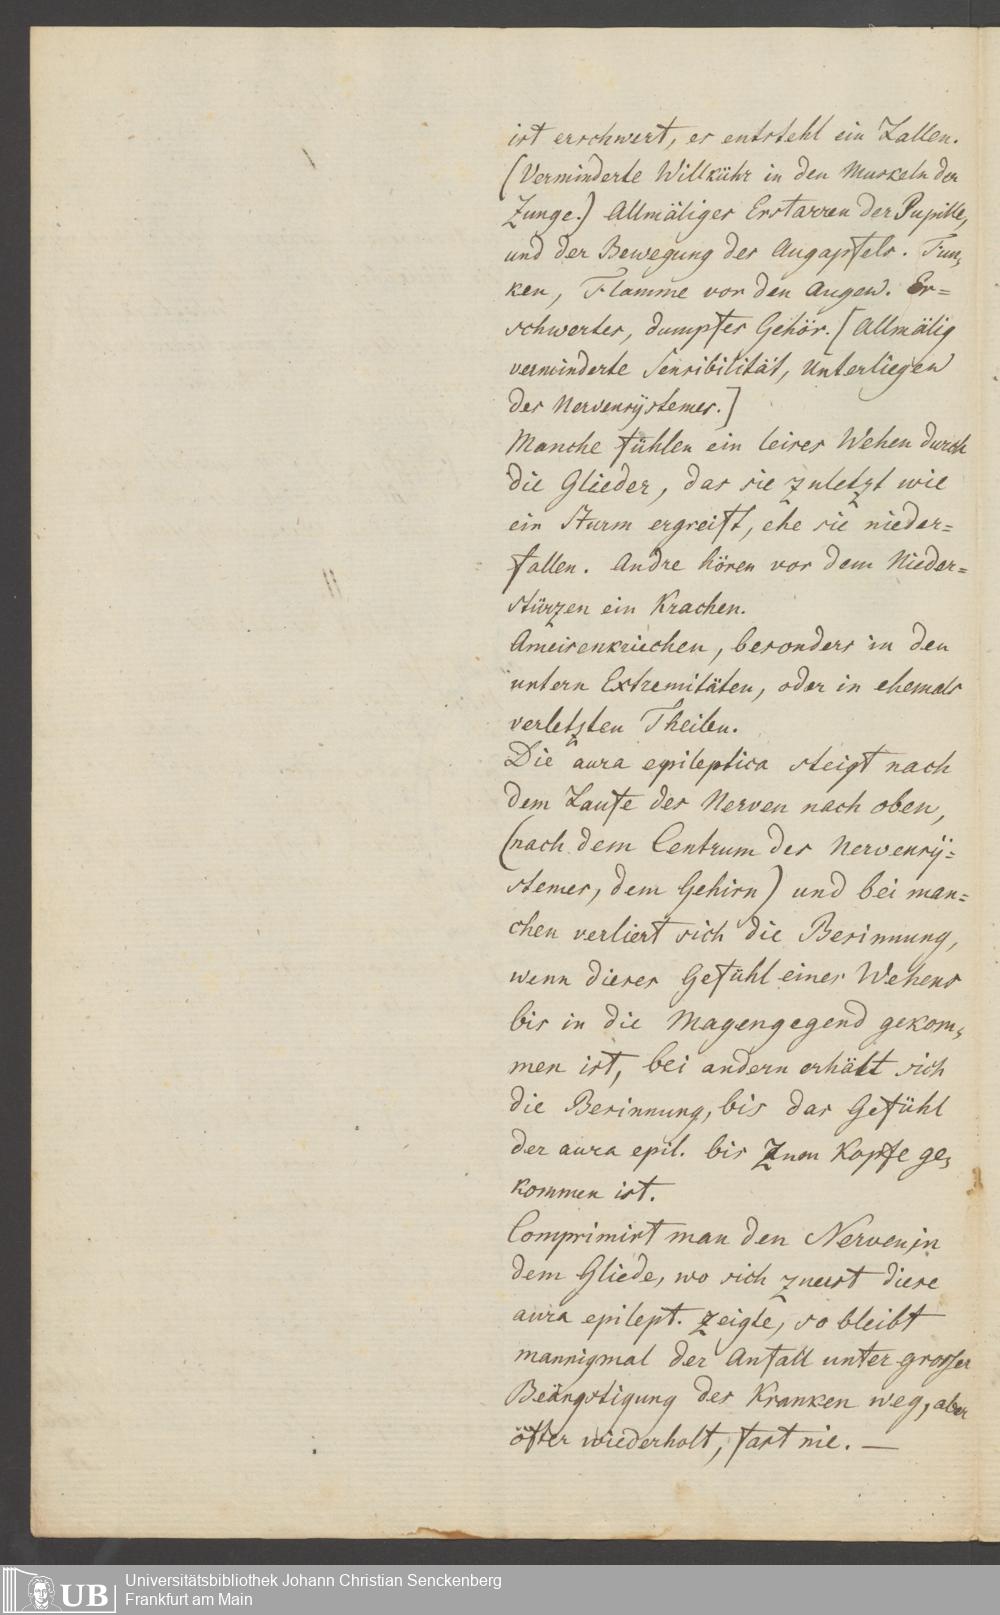 ist erschwert, es entsteht ein Lallen.
(Verminderte Willkühr in den Muskeln der
Zunge.) Allmäliges Erstarren der Pupille,
und der Bewegung des Augapfels. Fun,
ken, Flamme vor den Augen. Er=
schwertes, dumpfes Gehör. [Allmälig
verminderte Sensibilität, Unterliegen
des Nervensÿstemes.]
Manche fühlen ein leises Wehen durch
die Glieder, das sie zuletzt wie
ein Sturm ergreift, ehe sie nieder=
fallen. Andre hören vor dem Nieder=
stürzen ein Krachen.
Ameisenkriechen, besonders in den
untern Extremitäten, oder in ehemals
verletzten Theilen.
Die aura epileptica steigt nach
dem Laufe der Nerven nach oben,
(nach dem Centrum des Nervensÿ=
stemes, dem Gehirn) und bei man=
chen verliert sich die Besinnung,
wenn dieses Gefühl eines Wehens
bis in die Magengegend gekom,
men ist, bei andern erhält sich
die Besinnung, bis das Gefühl
der aura epil. bis zum Kopfe ge,
kommen ist.
Comprimirt man den Nerven in
dem Gliede, wo sich zuerst diese
aura epilept. zeigte, so bleibt
mannigmal der Anfall unter grosser
Beängstigung des Kranken weg, aber
öfter wiederholt, fast nie. —
UB Universitätsbibliothek Johann Christian Senckenberg
Frankfurt am Main